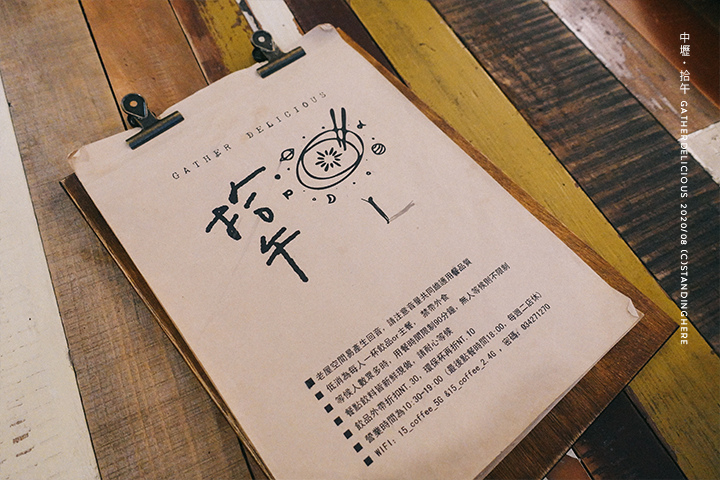 GATHER DELICIOUS
拾午
■ 老屋空間易產生回音,請注意音量共同維護用餐品質
■ 低消為每人一杯飲品or主餐, 禁帶外食
■ 等候人數眾多時, 用餐時間限制90分鐘, 無人等候則不限制
■ 餐點飲料皆新鮮現做, 請耐心等候
■ 飲品外帶折扣NT.30, 環保杯再折NT.10
■ 營業時間為10:30-19:00 (最後點餐時間18:00, 每週二店休)
■ WIFI: 15_coffee_5G &15_coffee_2.4G , 密碼: 034271270
中壢・拾午 GATHER DELICIOUS 2020/08 (C)STANDINGHERE